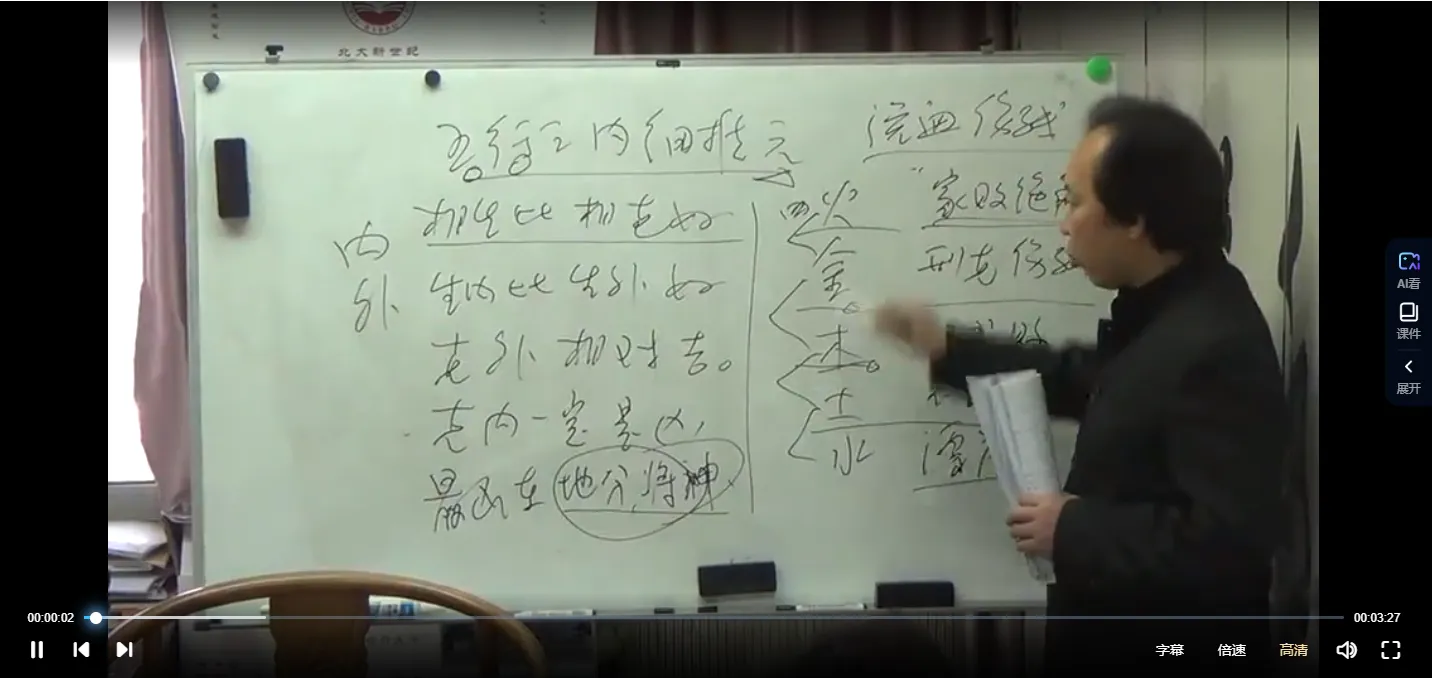 北大新世纪
五行之内细推元
相生比相克好
内 生内比生外好
外 克外相对吉。
克内一定是凶,
最凶在地分,将神
流血伤残
"家败绝
刑克伤
火
金。
木。
土
水
AI看
课件
展开
00:00:02
00:03:27
字幕
倍速
高清